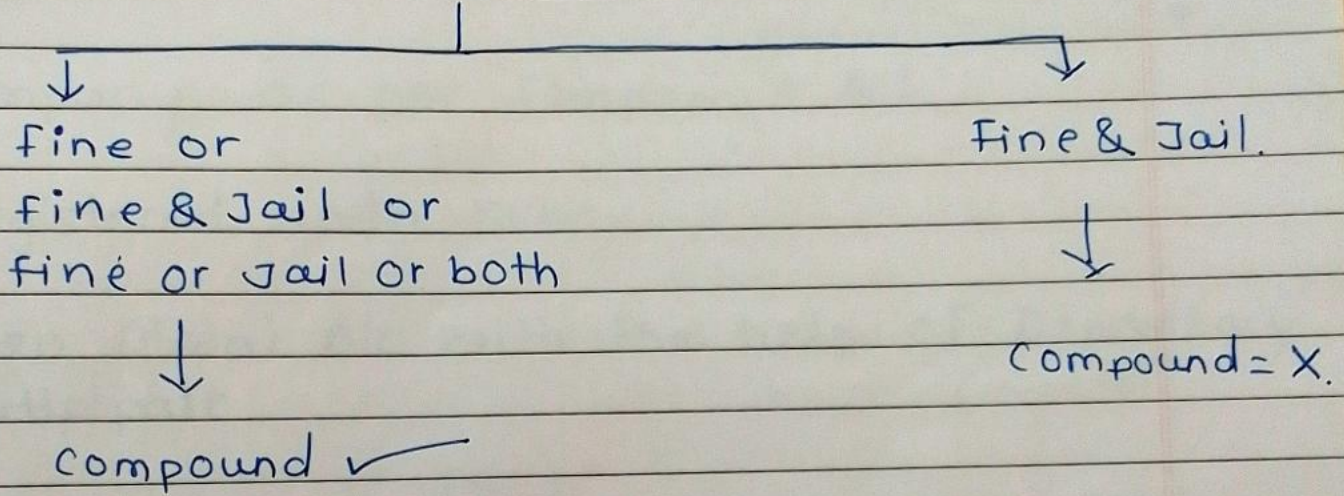 fine or
fine & Jail or
fine or Jail or both
compound ✓
Fine & Jail.
compound = X.